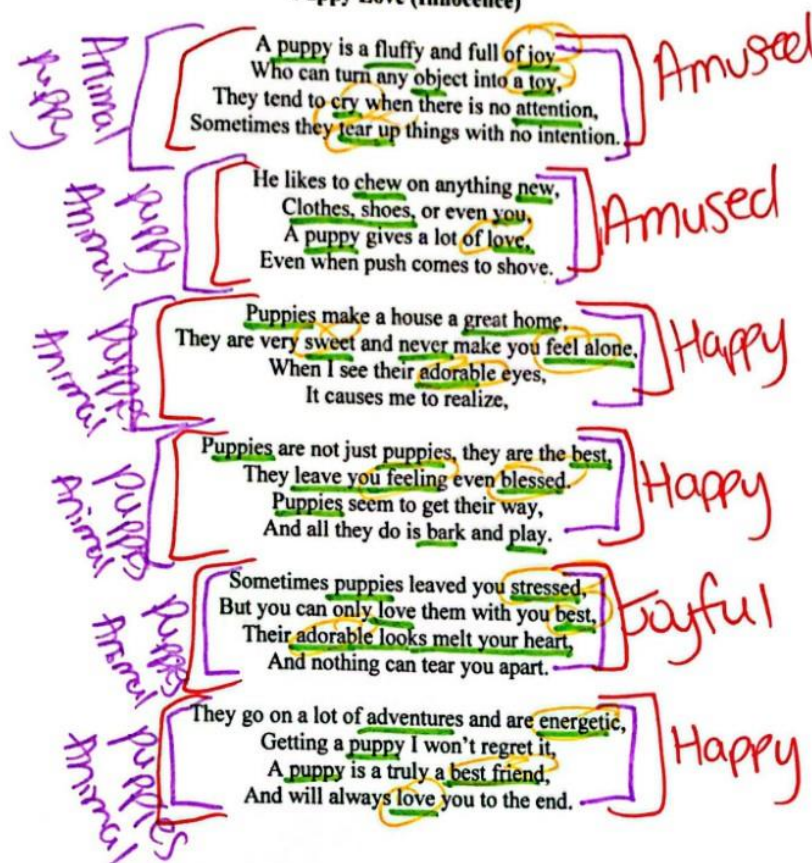 Love (Innocence)
A puppy is a fluffy and full of joy
Who can turn any object into a toy,
They tend to cry when there is no attention,
Sometimes they tear up things with no intention.
Animal
puppy
Amused
He likes to chew on anything new,
Clothes, shoes, or even you,
A puppy gives a lot of love,
Even when push comes to shove.
puppy
Animal
Amused
Puppies make a house a great home,
They are very sweet and never make you feel alone,
When I see their adorable eyes,
It causes me to realize,
Animal
Happy
Puppies are not just puppies, they are the best,
They leave you feeling even blessed.
Puppies seem to get their way,
And all they do is bark and play.
Animal
Happy
Sometimes puppies leaved you stressed,
But you can only love them with you best,
Their adorable looks melt your heart,
And nothing can tear you apart.
Animal
Joyful
They go on a lot of adventures and are energetic,
Getting a puppy I won't regret it,
A puppy is a truly a best friend,
And will always love you to the end.
puppies
Animal
Happy